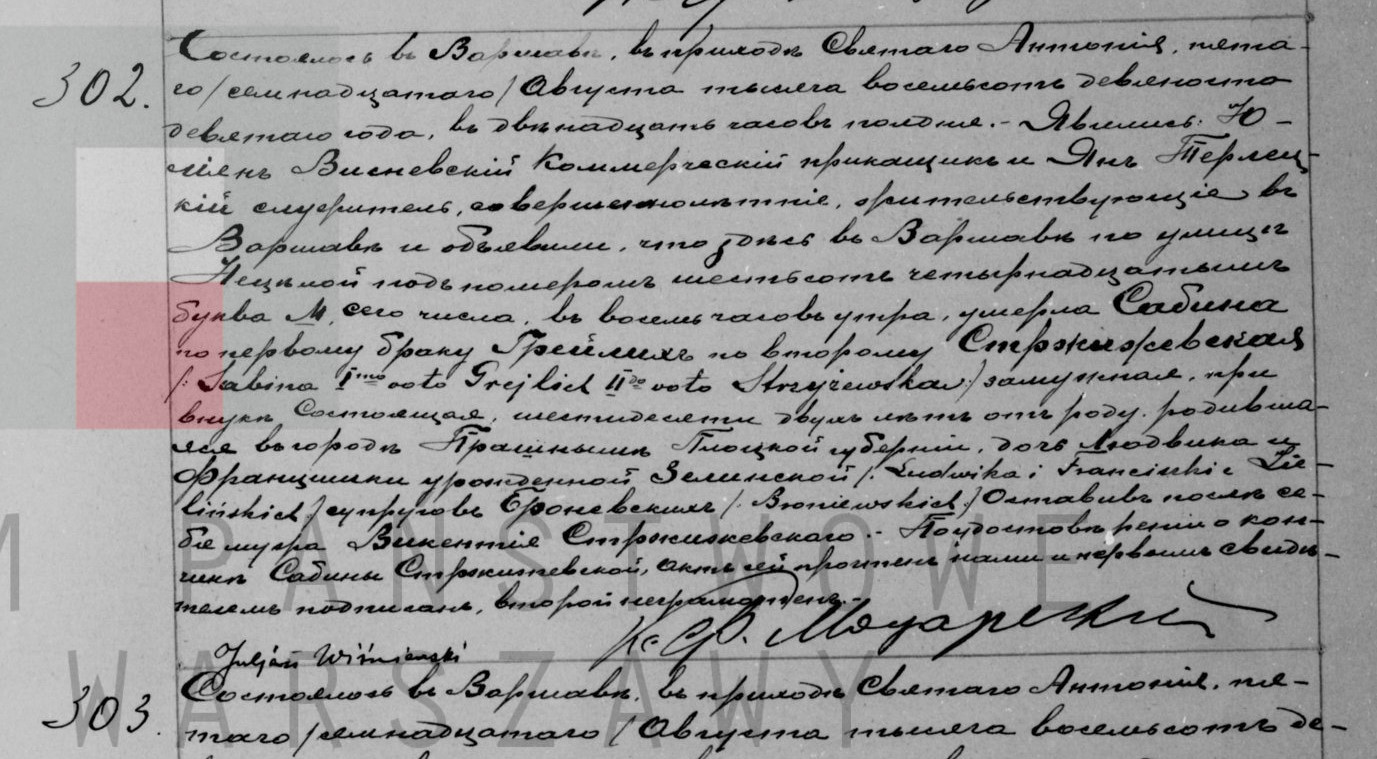 302.
Состоялось въ Варшавѣ, въ приходѣ Святаго Антонія, пята-
го /семнадцатаго/ Августа тысяча восемьсотъ девяносто
девятаго года, въ двѣнадцать часовъ полдня. - Явились: Ю-
ліянъ Висневскій Коммерческій прикащикъ и Янъ Терлец-
кій служитель, совершеннолѣтніе, жительствующіе въ
Варшавѣ и объявили, что здѣсь въ Варшавѣ по улицѣ
Нецѣлой подъ номеромъ шестьсотъ четырнадцатымъ
буква М, сего числа, въ восемь часовъ утра, умерла Сабина
по первому браку Грейлихъ по второму Стржижевская
/: Sabina Imo voto Grejlich IIdo voto Strzyżewska :/ замужная, при
внукѣ состоящая, шестидесяти двухъ лѣтъ отъ роду, родивша-
яся въ городѣ Прашнышѣ Плоцкой губерніи, дочь Людвика и
Францишки урожденной Зелинской /: Ludwika i Franciszki z Zie-
lińskich / супруговъ Броневскихъ /: Broniewskich / Оставивъ послѣ се-
бя мужа Викентія Стржижевскаго. - По удостовѣреніи о кон-
чинѣ Сабины Стржижевской, актъ сей прочтенъ нами и первымъ свидѣ-
телемъ подписанъ, второй неграмотенъ. -
Juljan Wiśniewski
303.
Состоялось въ Варшавѣ, въ приходѣ Святаго Антонія, пя-
таго /семнадцатаго/ Августа тысяча восемьсотъ де-
M PAŃSTWOWE
WARSZAWY